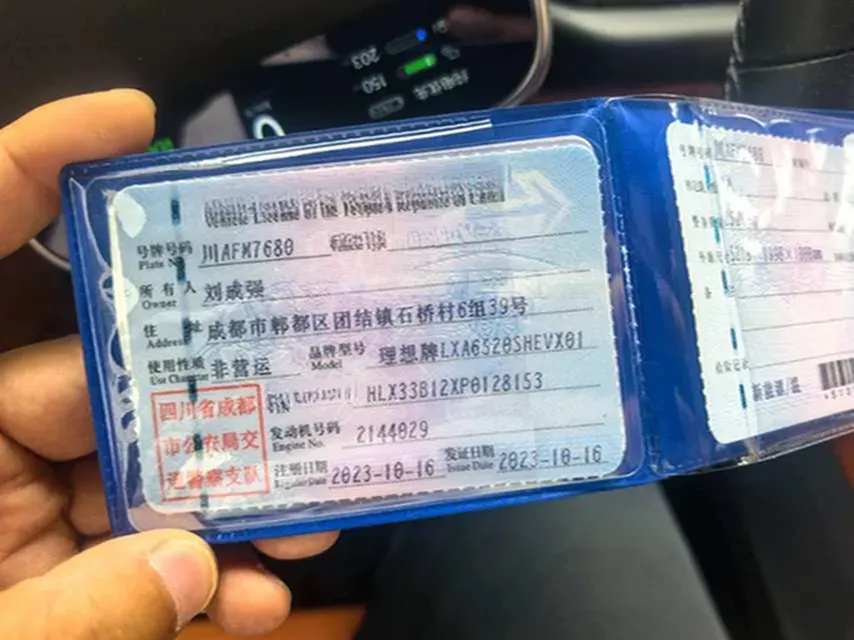 Vehicle License of the People's Republic of China
号牌号码 川AFM7680
Plate No.
所有人 刘成强
Owner
住 址 成都市郫都区团结镇石桥村6组39号
Address
使用性质 非营运 品牌型号 理想牌LXA6520SHEVX01
Use Character Model
四川省成都
市公安局交
通警察支队
VIN HLX33B12XP0128153
发动机号码 2144029
Engine No.
注册日期 2023-10-16 发证日期 2023-10-16
Register Date Issue Date
号牌号码 川AFM7680
检验记录
203
150